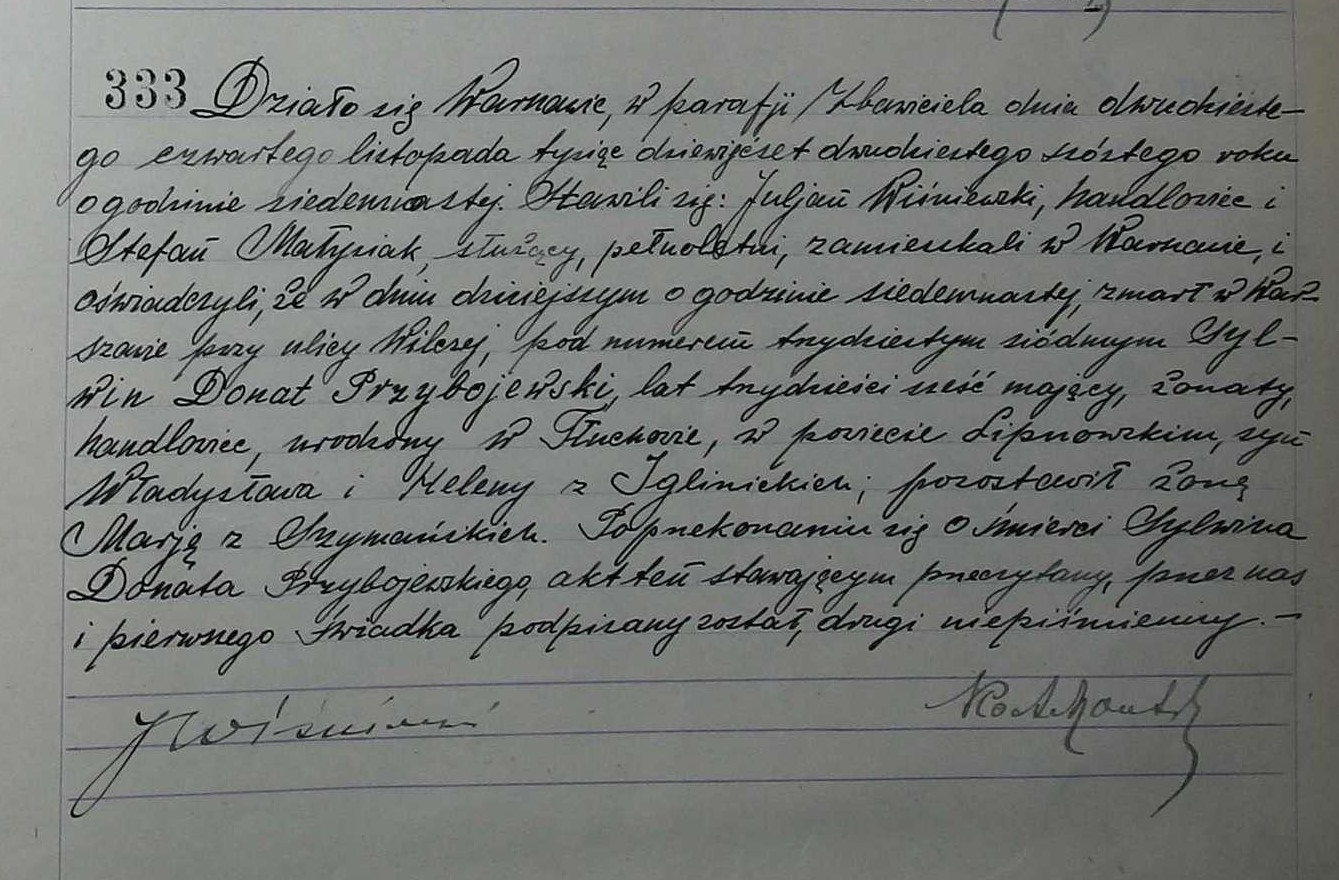 333 Działo się Warszawie, w parafji Zbawiciela dnia dwudzieste-
go czwartego listopada tysiąc dziewięćset dwudziestego szóstego roku
o godzinie siedemnastej. Stawili się: Juljan Wiśniewski, handlowiec i
Stefan Małysiak, służący, pełnoletni, zamieszkali w Warszawie, i
oświadczyli, że w dniu dzisiejszym o godzinie siedemnastej, zmarł w War-
szawie przy ulicy Wilczej, pod numerem trzydziestym siódmym Syl-
win Donat Przybojewski, lat trzydzieści sześć mający, żonaty,
handlowiec, urodzony w Tłuchowie, w powiecie Lipnowskim, syn
Władysława i Heleny z Iglinickich; pozostawił żonę
Marję z Szymańskich. Po przekonaniu się o śmierci Sylwina
Donata Przybojewskiego, akt ten stawającym przeczytany, przez nas
i pierwszego świadka podpisany został, drugi niepiśmienny. –
J Wiśniewski